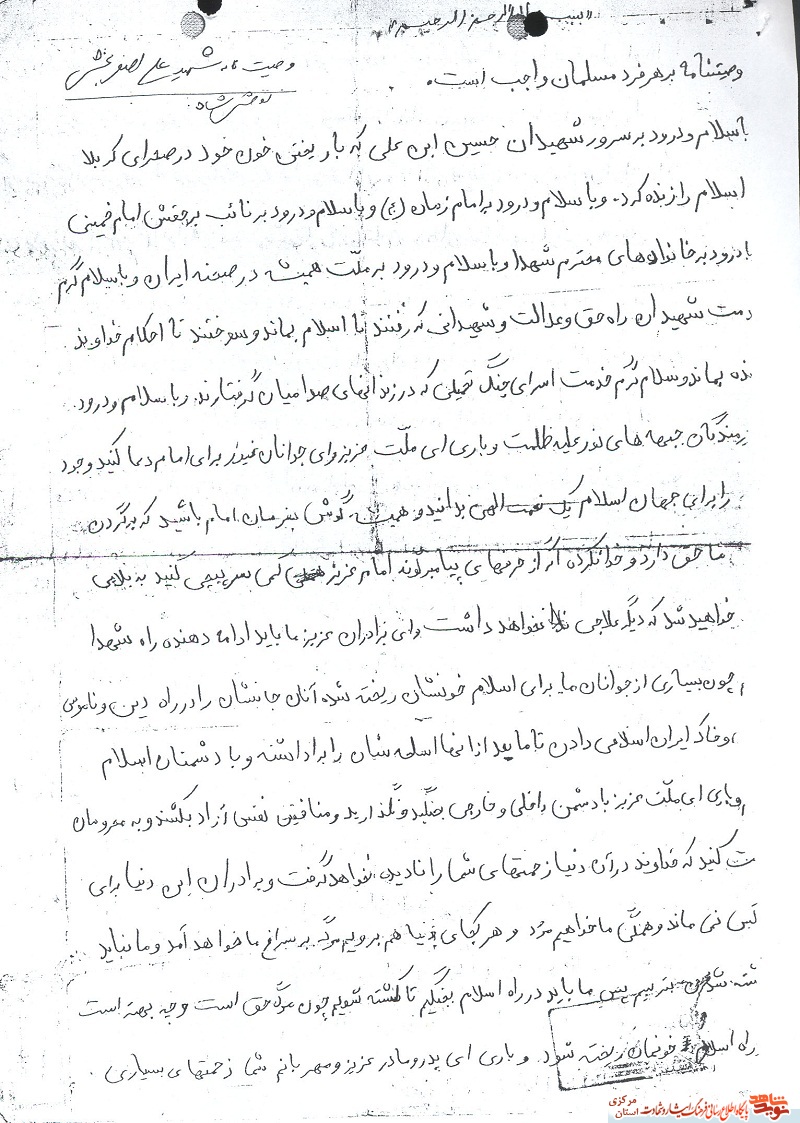 «بسم الله الرحمن الرحیم»
وصیت نامه شهید علی
وصیتنامه بر هر فرد مسلمان واجب است.
باسلام و درود بر سرور شهیدان حسین ابن علی که با ریختن خون خود در صحرای کربلا
اسلام را زنده کرد. و با سلام و درود بر امام زمان (عج) و باسلام و درود بر نائب برحقش امام خمینی
با درود بر خانواده های محترم شهدا و با سلام و درود بر ملّت همیشه در صحنه ایران و با سلام گرم
دمت شهیدان راه حق و عدالت و شهیدانی که رفتند تا اسلام بماند و سوختند تا احکام خداوند
نده بماند و سلام گرم خدمت اسرای جنگ تحمیلی که در زندانهای صدامیان گرفتارند. و با سلام و درود
زمندگان جبهه های نور علیه ظلمت و باری ای ملّت عزیز و ای جوانان غیور برای امام دعا کنید وجود
را برای جهان اسلام یک نعمت الهی بدانید و همیشه گوش بفرمان امام باشید که بر گردن
ما حق دارد و خدانکرده اگر از حرفهای پیامبرگونه امام عزیز کمی سرپیچی کنید به بلایی
خواهید شد که دیگر علاجی نخواهد داشت و ای برادران عزیز ما باید ادامه دهنده راه شهدا
چون بسیاری از جوانان ما برای اسلام خونشان ریخته شده آنان جانشان را در راه دین و ناموس
و خاک ایران اسلامی دادن تا ما بعد از آنها اسلحه شان را برداشته و با دشمنان اسلام
و باری ای ملّت عزیز با دشمن داخلی و خارجی بجنگید و نگذارید و منافقین نفس آزاد بکشند و به محرومان
ت کنید که خداوند در آن دنیا زحمتهای شما را نادیده نخواهد گرفت و برادران این دنیا برای
کس نمی ماند و همگی ما خواهیم مرد و هر کجای دنیا هم برویم مرگ بر سراغ ما خواهد آمد و ما نباید
شته شدن بترسیم پس ما باید در راه اسلام بجنگیم تا کشته شویم چون مرگ حق است و چه بهتر است
راه اسلام خونمان ریخته شود. و باری ای پدر و مادر عزیز و مهربانم شما زحمتهای بسیاری.
نوید شاهد پایگاه اطلاع رسانی فرهنگ ایثار و شهادت استان مرکزی